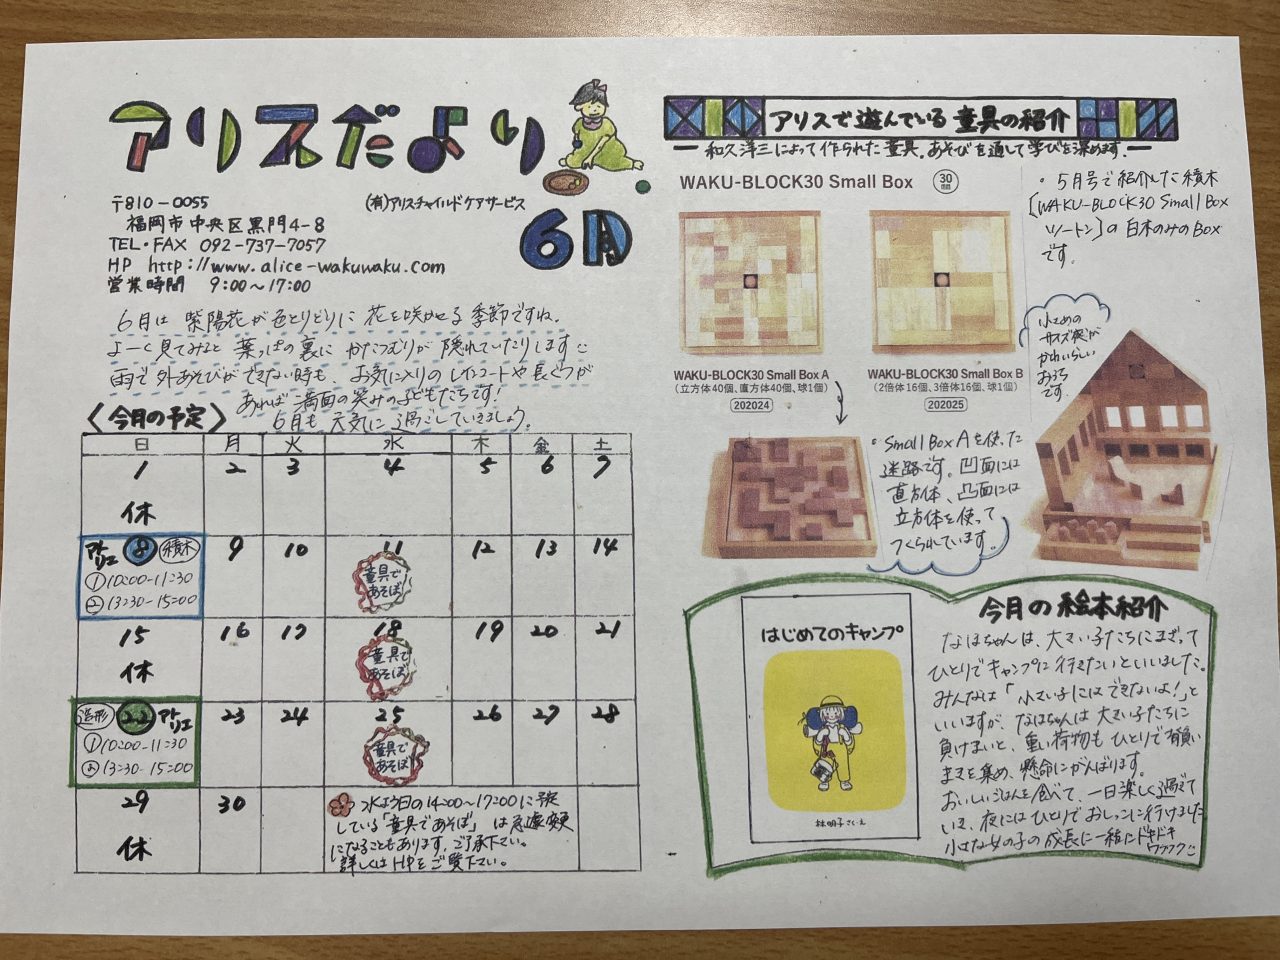 アリスだより
6月
〒810-0055
(有)アリスチャイルドケアサービス
福岡市中央区黒門4-8
TEL・FAX 092-737-7057
HP http://www.alice-wakuwaku.com
営業時間 9:00〜17:00
6月は紫陽花が色とりどりに花を咲かせる季節ですね。
よーく見てみると葉っぱの裏にかたつむりが隠れていたりします
雨で外あそびができない時も、お気に入りのレインコートや長ぐつが
あれば満面の笑みの子どもたちです!
6月も元気に過ごしていきましょう。
〈今月の予定〉
日 月 火 水 木 金 土
1 2 3 4 5 6 7
休
アトリエ 8 積木 9 10 11 12 13 14
①10:00-11:30
②13:30-15:00
童具であそぼ
15 16 17 18 19 20 21
休
童具であそぼ
造形 22 アトリエ 23 24 25 26 27 28
①10:00-11:30
②13:30-15:00
童具であそぼ
29 30
休
水よう日の14:00〜17:00に予定
している「童具であそぼ」は急遽変更
になることもあります。ご了承下さい。
詳しくはHPをご覧下さい。
アリスで遊んでいる童具の紹介
ー和久洋三によって作られた童具。あそびを通して学びを深めます。ー
WAKU-BLOCK30 Small Box 30mm
・5月号で紹介した積木
[WAKU-BLOCK30 Small Box
ソートン]の白木のみのBox
です。
WAKU-BLOCK30 Small Box A
(立方体40個、直方体40個、球1個)
202024
WAKU-BLOCK30 Small Box B
(2倍体16個、3倍体16個、球1個)
202025
小さめの
サイズ感が
かわいらしい
おうち
です。
・Small Box Aを使った
迷路です。凹面には
直方体、凸面には
立方体を使って
つくられています。
今月の絵本紹介
はじめてのキャンプ
林明子さく・え
なほちゃんは、大きい子たちにまざって
ひとりでキャンプに行きたいといいました。
みんなは「小さい子にはできないよ!」と
いいますが、なほちゃんは大きい子たちに
負けまいと、重い荷物もひとりで背負い
まきを集め、懸命にがんばります。
おいしいごはんを食べて、一日楽しく過ごて
いき、夜にはひとりでおしっこに行けました
小さな女の子の成長に一緒にドキドキ
ワクワク